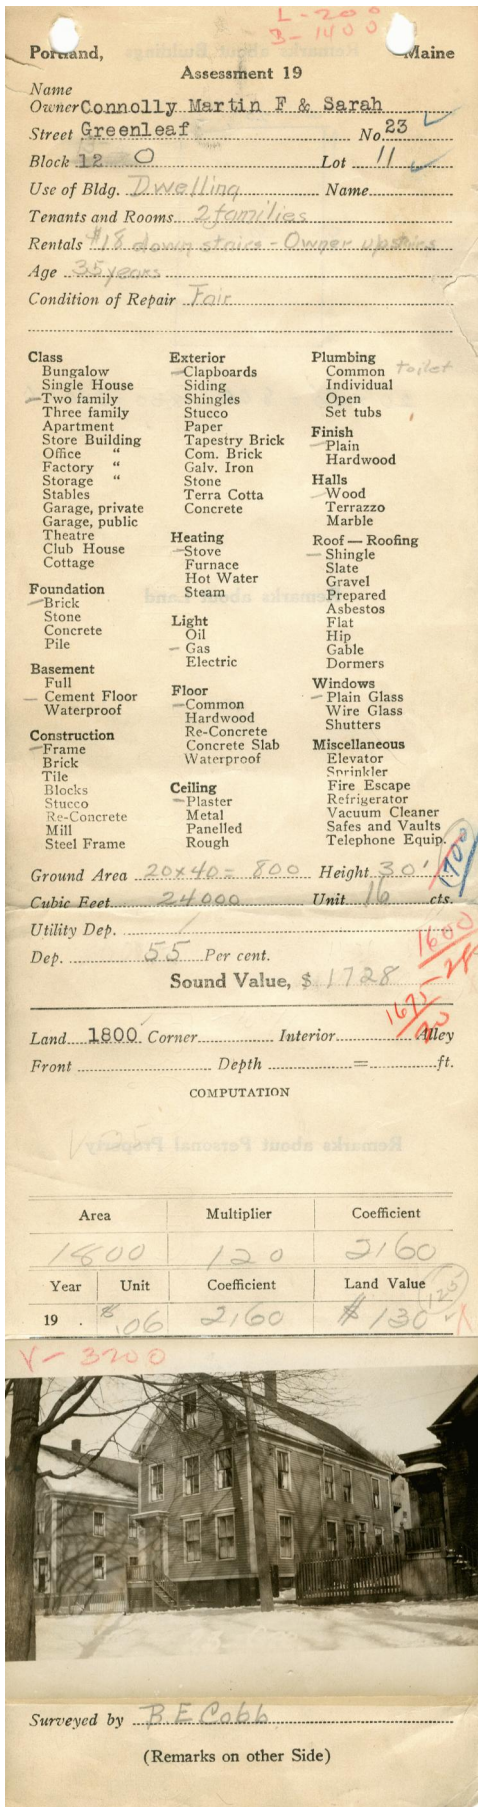 L-200
B-1400
Portland, Maine
Assessment 19
Name
Owner Connolly Martin F & Sarah
Street Greenleaf No. 23
Block 12 O Lot 11
Use of Bldg. Dwelling Name
Tenants and Rooms 2 families
Rentals $18 down stairs - Owner upstairs
Age 35 years
Condition of Repair Fair
Class
Bungalow
Single House
Two family
Three family
Apartment
Store Building
Office "
Factory "
Storage "
Stables
Garage, private
Garage, public
Theatre
Club House
Cottage
Foundation
Brick
Stone
Concrete
Pile
Basement
Full
Cement Floor
Waterproof
Construction
Frame
Brick
Tile
Blocks
Stucco
Re-Concrete
Mill
Steel Frame
Exterior
Clapboards
Siding
Shingles
Stucco
Paper
Tapestry Brick
Com. Brick
Galv. Iron
Stone
Terra Cotta
Concrete
Heating
Stove
Furnace
Hot Water
Steam
Light
Oil
Gas
Electric
Floor
Common
Hardwood
Re-Concrete
Concrete Slab
Waterproof
Ceiling
Plaster
Metal
Panelled
Rough
Plumbing
Common toilet
Individual
Open
Set tubs
Finish
Plain
Hardwood
Halls
Wood
Terrazzo
Marble
Roof — Roofing
Shingle
Slate
Gravel
Prepared
Asbestos
Flat
Hip
Gable
Dormers
Windows
Plain Glass
Wire Glass
Shutters
Miscellaneous
Elevator
Sprinkler
Fire Escape
Refrigerator
Vacuum Cleaner
Safes and Vaults
Telephone Equip.
1700
Ground Area 20x40= 800 Height 30'
Cubic Feet 24000 Unit 16 cts.
Utility Dep.
1600
Dep. 55 Per cent.
Sound Value, $ 1728
1675
Land 1800 Corner Interior Alley
Front Depth = ft.
COMPUTATION
Remarks about Personal Property
Area Multiplier Coefficient
1800 120 2160
Year Unit Coefficient Land Value
125
19 . $.06 2160 $130
V-3200
Surveyed by B E Cobb
(Remarks on other Side)